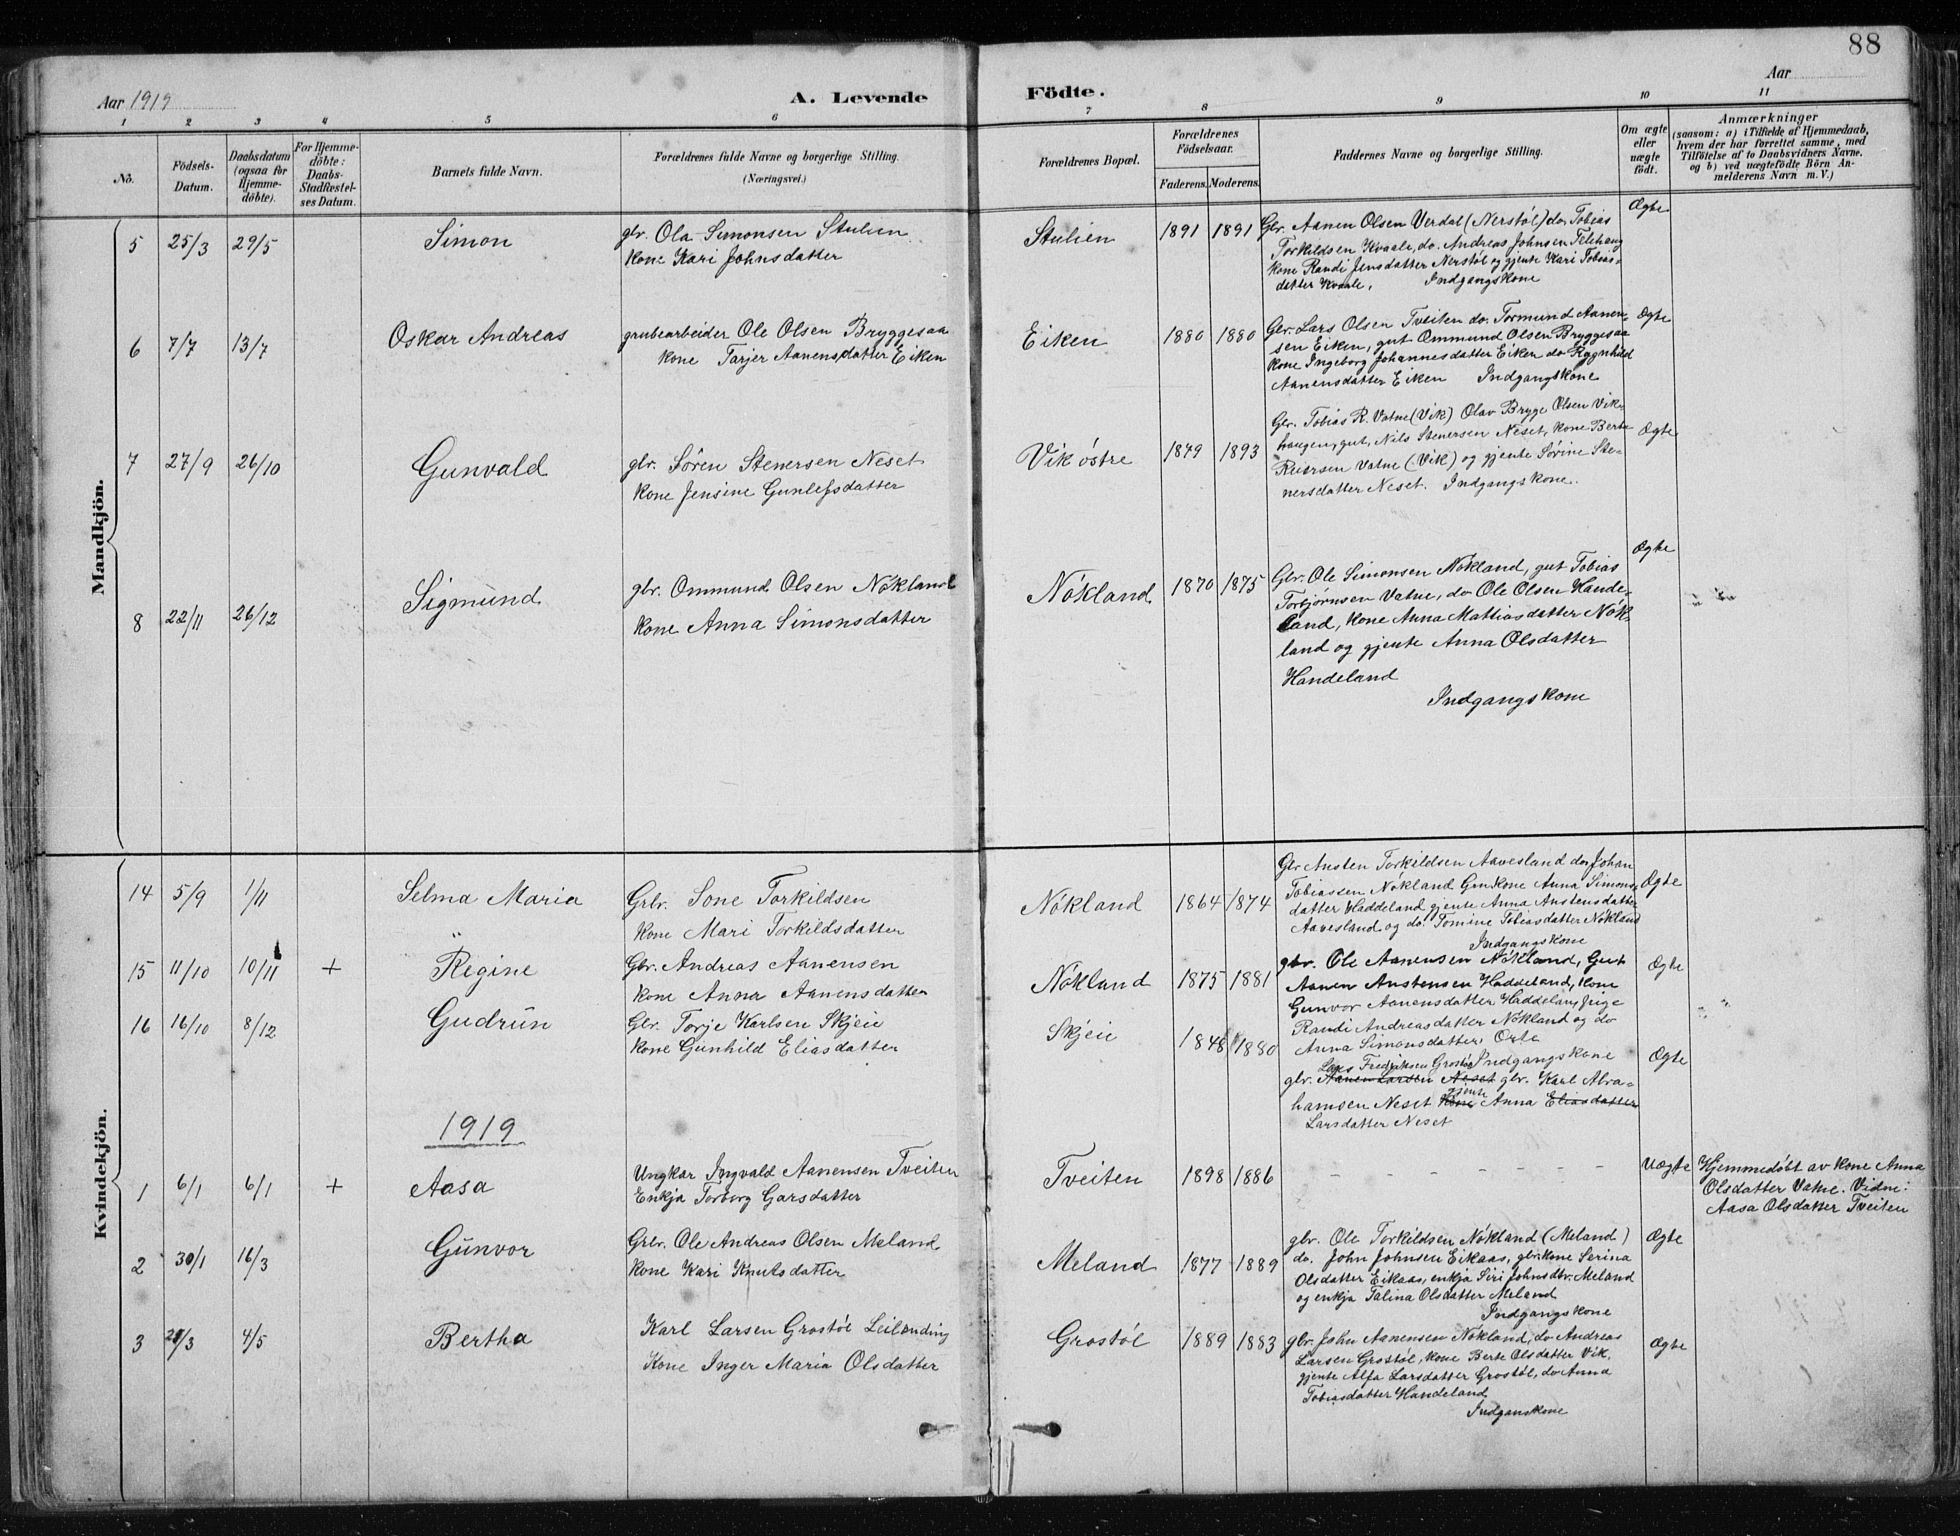 88
Aar 1919
A. Levende
Födte.
Aar
1 2 3 4 5 6 7 8 9 10 11
No.
Födsels-
Datum.
Daabsdatum
(ogsaa for
Hjemme-
döbte).
For Hjemme-
döbte:
Daabs-
Stadfæstel-
ses Datum.
Barnets fulde Navn.
Forældrenes fulde Navne og borgerlige Stilling.
(Næringsvei.)
Forældrenes Bopæl.
Forældrenes
Födselsaar.
Faderens. Moderens.
Faddernes Navne og borgerlige Stilling.
Om ægte
eller
uægte
født.
Anmærkninger
(saasom: a) i Tilfælde af Hjemmedaab,
hvem der har forrettet samme, med
Tilföielse af to Daabsvidners Navne.
og b) ved uægtefödte Börn An-
melderens Navn m. V.)
Mandkjön.
5 25/3 29/5
Simon
gbr. Ola Simonsen Stulien
kone Kari Johnsdatter
Stulien
1891 1891
Gbr. Aanen Olsen Verdal (Nerstøl) do. Tobias
Torkildsen Kvaale, do. Andreas Johnsen Telehaug
kone Randi Jensdatter Nerstøl og gjente Kari Tobias-
datter Kvaale, Indgangskone
Ægte
6 7/7 13/7
Oskar Andreas
grubearbeider Ole Olsen Bryggesaa
kone Tarjer Aanensdatter Eiken
Eiken
1880 1880
Gbr. Lars Olsen Tveiten do. Tormund Aanen-
sen Eiken, gut Ommund Olsen Bryggesaa
kone Ingeborg Johannesdatter Eiken do Ragnhild
Aanensdatter Eiken Indgangskone
Ægte
7 27/9 26/10
Gunvald
gbr. Sören Stenersen Neset
kone Jensine Gunlefsdatter
Vik östre
1879 1893
Gbr. Tobias R. Vatne (Vik) Olav Brygge Olsen Vik-
haugen, gut, Nils Stenersen Neset, kone Berte
Reiersen Vatne (Vik) og gjente Sörine Ste-
nersdatter Neset. Indgangskone.
Ægte
8 22/11 26/12
Sigmund
gbr. Ommund Olsen Nökland
kone Anna Simonsdatter
Nökland
1870 1875
Gbr. Ole Simonsen Nökland, gut Tobias
Torbjørnsen Vatne, do Ole Olsen Hande-
land, kone Anna Mattiasdatter Nök-
land og gjente Anna Olsdatter
Handeland
Indgangskone
Ægte
Kvindekjön.
14 5/9 1/11
Selma Maria
Grbr. Sone Torkildsen
kone Mari Torkildsdatter
Nökland
1864 1874
Gbr Austen Torkildsen Aavesland do. Johan
Tobiassen Nökland Gmkone Anna Simons-
datter Haddeland gjente Anna Austensdatter
Aavesland og do. Tomine Tobiasdatter Nökland
Indgangskone
Ægte
15 11/10 10/11 +
Regine
Gbr. Andreas Aanensen
kone Anna Aanensdatter
Nökland
1875 1881
gbr. Ole Aanensen Nökland, Gut
Aanen Austensen Haddeland, kone
Gunvor Aanensdatter Haddeland, pige
Randi Andreasdatter Nökland og do
Anna Simonsdatter
Indgangskone
Ægte
16 16/10 8/12
Gudrun
Gbr. Torje Karlsen Skjeie
kone Gunhild Eliasdatter
Skjeie
1848 1880
Lars Fredriksen Grostöl
gbr. Aanen Larsen Neset gbr. Karl Abra-
gjente
hamsen Neset kone Anna Eliasdatter
Larsdatter Neset
Ægte
1919
1 6/1 6/1 +
Aasa
Ungkar Ingvald Aanensen Tveiten
Enkja Torborg Garsdatter
Tveiten
1898 1886
- - - - - - -
Uægte
Hjemmedøbt av kone Anna
Olsdatter Vatne. Vidne:
Aasa Olsdatter Tveiten
2 30/1 16/3
Gunvor
Grbr. Ole Andreas Olsen Meland
kone Kari Knutsdatter
Meland
1877 1889
gbr. Ole Torkildsen Nökland (Meland)
do. John Johnsen Eikaas, gbr.kone Serina
Olsdatter Eikaas, enkja Siri Johnsdtr. Meland
og enkja Talina Olsdatter Meland
Indgangskone
Ægte
3 21/3 4/5
Bertha
Karl Larsen Grostöl Leilending
Kone Inger Maria Olsdatter
Grostöl
1889 1883
gbr. John Aanensen Nökland, do Andreas
Larsen Grostöl, kone Berte Olsdatter Vik,
gjente Alfa Larsdatter Grostöl, do Anna
Tobiasdatter Handeland
Indganskone
Ægte